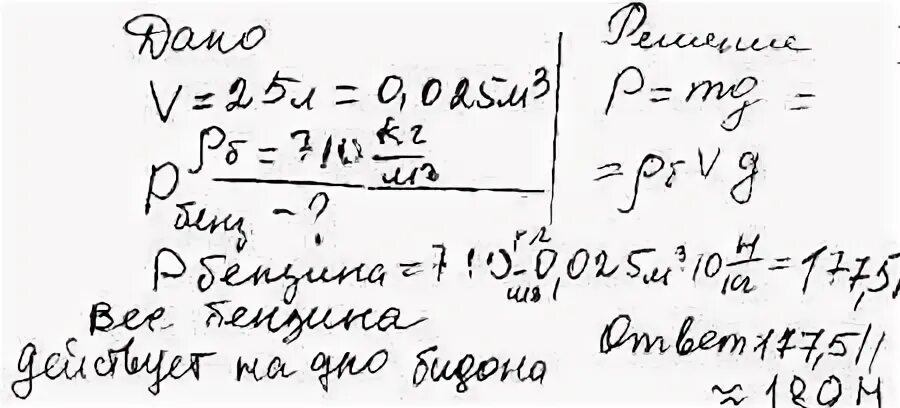 Дано
V = 25л = 0,025м³
ρб = 710 кг/м³
Pбенз - ?
Решение
P = mg =
= ρб V g
P бензина = 710 кг/м³ 0,025м³ 10 Н/кг = 177,5
Вес бензина
действует на дно бидона
Ответ 177,5 Н
≈ 180 Н